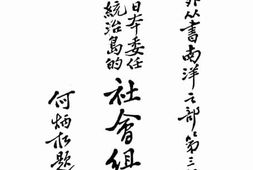 外丛書南洋之部第三
日本委任
統治島的
社會組
何炳松題